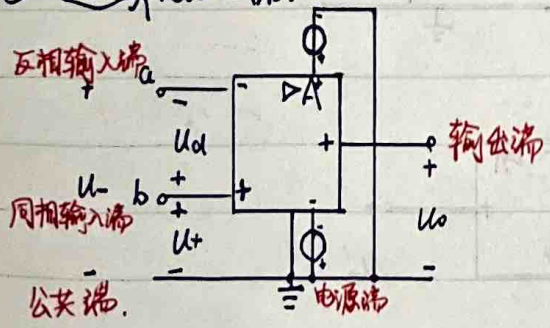 反相输入端 a
+ - - ▷A
Ud + 输出端
U- b + + +
同相输入端 + U+ Uo
- - - -
公共端. 电源端